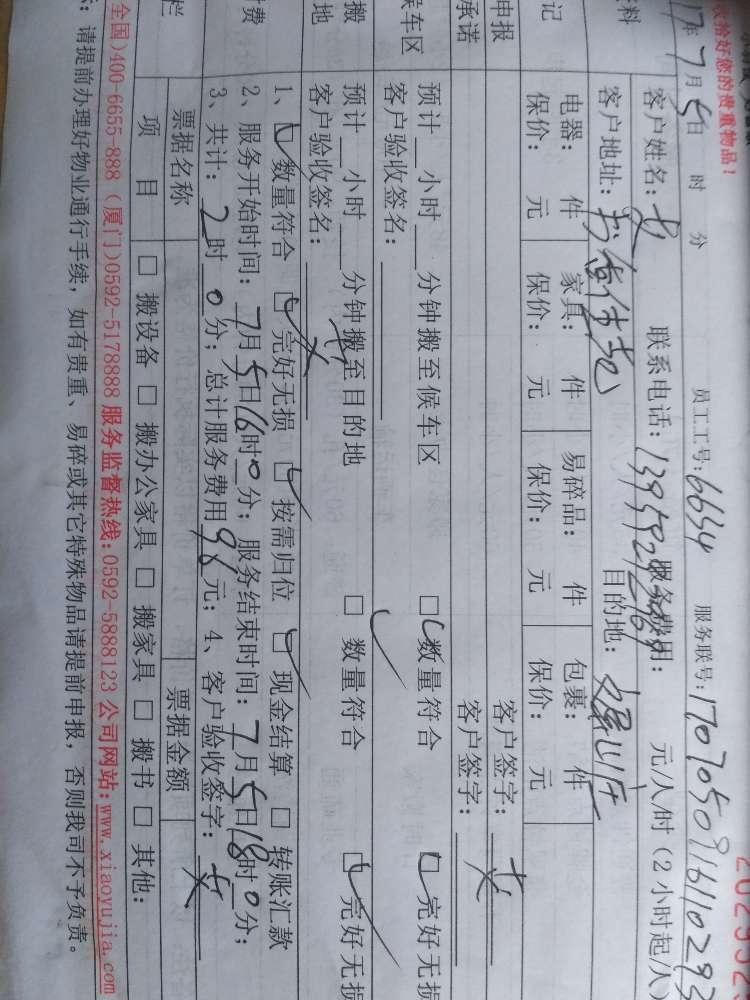 收拾好您的贵重物品!
202952
17年7月5日 时 分 员工工号:6634 服务联号:
客户姓名: 联系电话: 服务费用: 元/人/时(2小时起/人)
客户地址: 目的地:
电器: 件 家具: 件 易碎品: 件 包裹: 件
保价: 元 保价: 元 保价: 元 保价: 元
记
申报 客户签字:
承诺 客户签字:
候车区 预计__小时__分钟搬至候车区 □数量符合 □完好无损
客户验收签名:
搬 预计__小时__分钟搬至目的地 □数量符合 □完好无损
地 客户验收签名:
1、□数量符合 □完好无损 □按需归位 □现金结算 □转账汇款
付费 2、服务开始时间:7月5日16时0分;服务结束时间:7月5日18时0分;
3、共计:2时0分;总计服务费用96元;4、客户验收签字:
栏 票据名称 票据金额
项 目 □搬设备 □搬办公家具 □搬家具 □搬书 □其他:
全国)400-6655-888 (厦门)0592-5178888 服务监督热线:0592-5888123 公司网站:www.xiaoyujia.com
:请提前办理好物业通行手续,如有贵重、易碎或其它特殊物品请提前申报,否则我司不予负责。